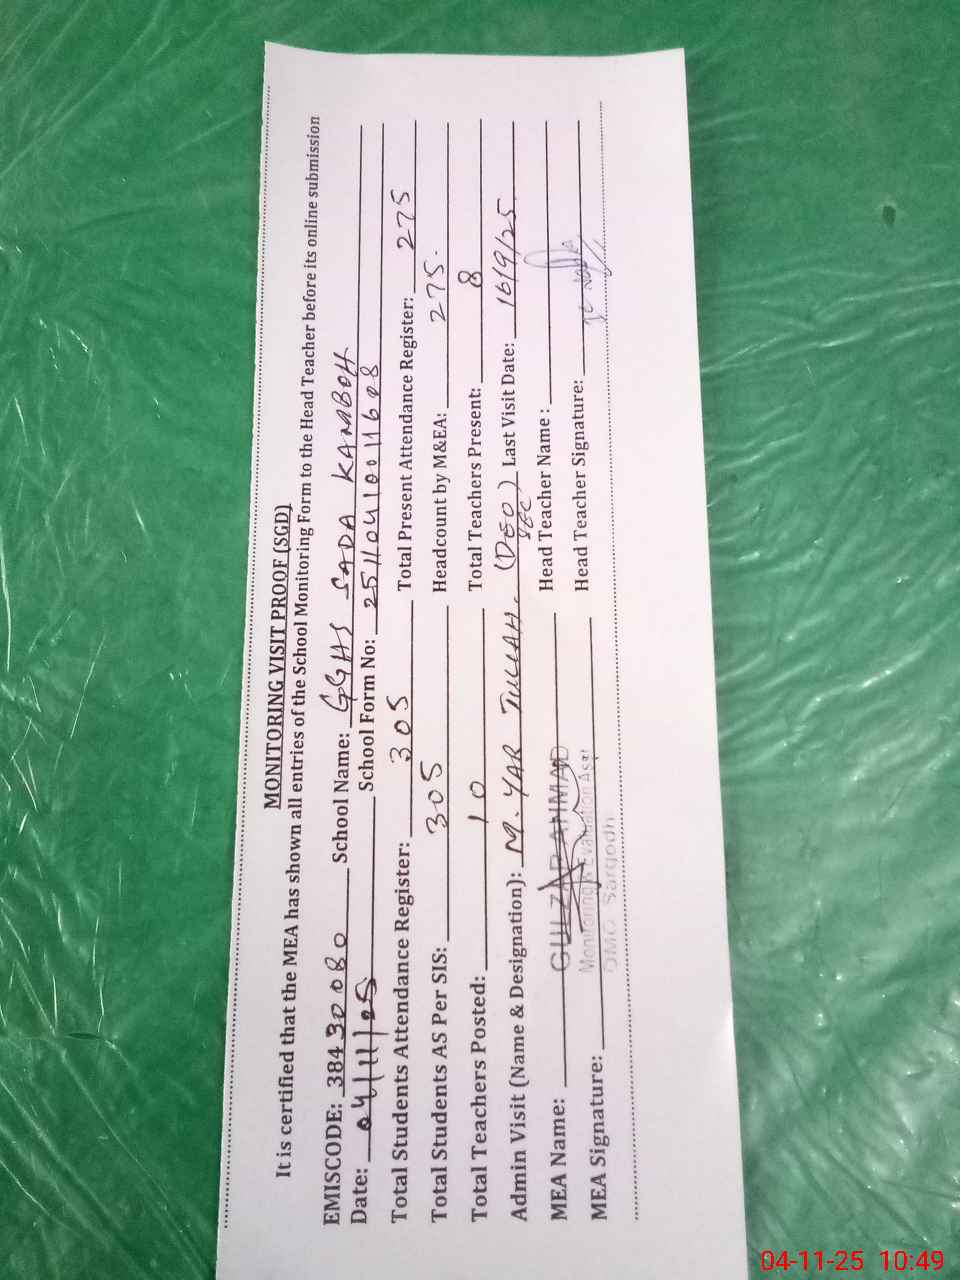 MONITORING VISIT PROOF (SGD)
It is certified that the MEA has shown all entries of the School Monitoring Form to the Head Teacher before its online submission
EMISCODE: 38430080 School Name: GGHS SADA KAMBOH
Date: 04/11/25 School Form No: 25110410011608
Total Students Attendance Register: 305 Total Present Attendance Register: 275
Total Students AS Per SIS: 305 Headcount by M&EA: 275.
Total Teachers Posted: 10 Total Teachers Present: 8
Admin Visit (Name & Designation): M. YAR (DEO) SEC Last Visit Date: 16/9/25
MEA Name: GULZAR AHMAD Head Teacher Name:
Monitoring & Evaluation Asst
MEA Signature: Head Teacher Signature:
DMO Sargodh
04-11-25 10:49